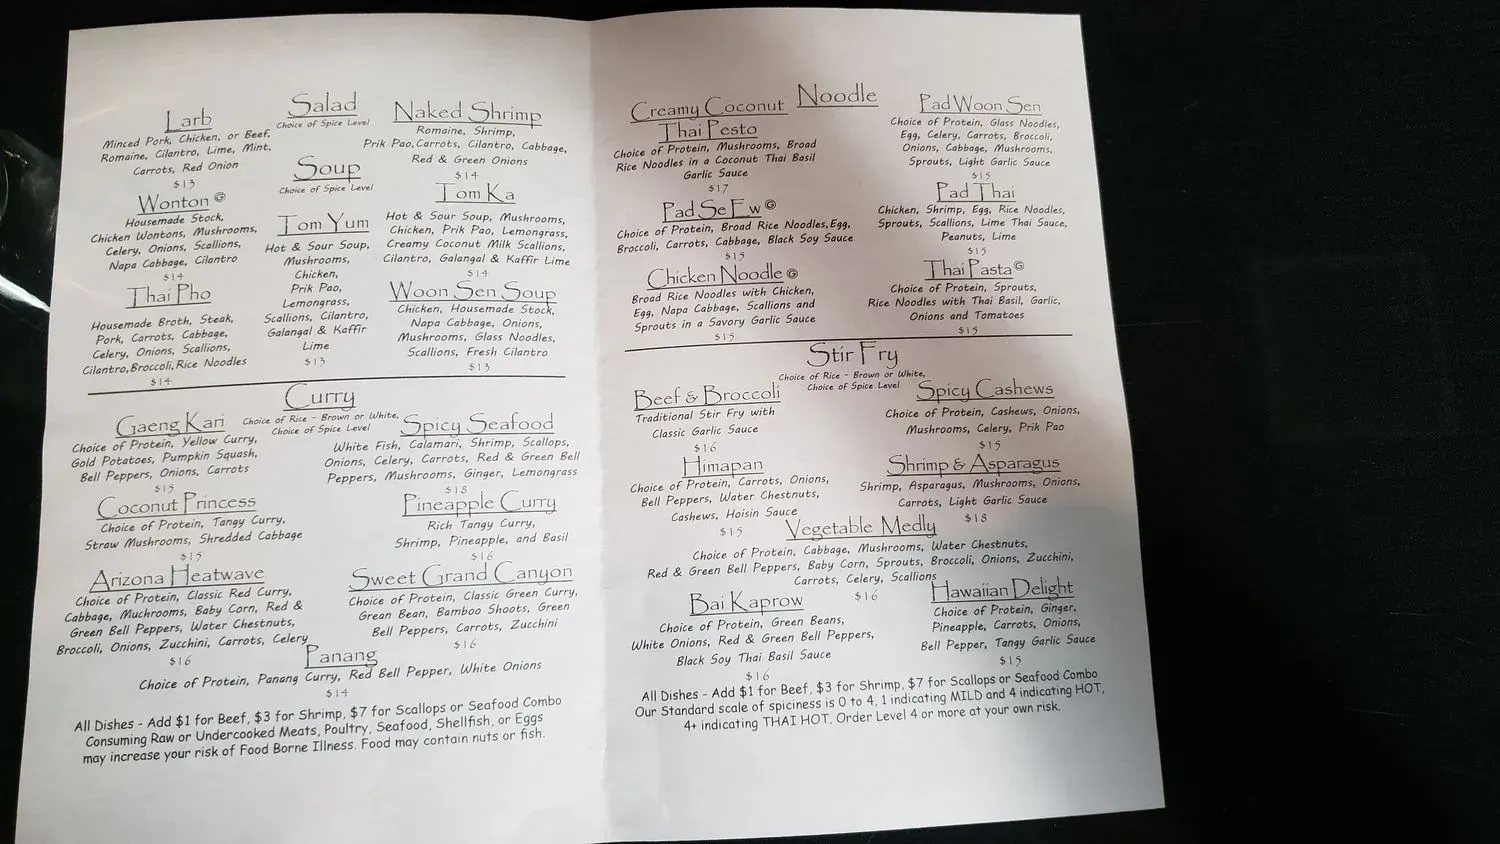 Salad
Choice of Spice Level
Larb
Minced Pork, Chicken, or Beef,
Romaine, Cilantro, Lime, Mint,
Carrots, Red Onion
$13
Naked Shrimp
Romaine, Shrimp,
Prik Pao, Carrots, Cilantro, Cabbage,
Red & Green Onions
$14
Soup
Choice of Spice Level
Wonton G
Housemade Stock,
Chicken Wontons, Mushrooms,
Celery, Onions, Scallions,
Napa Cabbage, Cilantro
$14
Tom Yum
Hot & Sour Soup,
Mushrooms,
Chicken,
Prik Pao,
Lemongrass,
Scallions, Cilantro,
Galangal & Kaffir
Lime
$13
Tom Ka
Hot & Sour Soup, Mushrooms,
Chicken, Prik Pao, Lemongrass,
Creamy Coconut Milk Scallions,
Cilantro, Galangal & Kaffir Lime
$14
Thai Pho
Housemade Broth, Steak,
Pork, Carrots, Cabbage,
Celery, Onions, Scallions,
Cilantro, Broccoli, Rice Noodles
$14
Woon Sen Soup
Chicken, Housemade Stock,
Napa Cabbage, Onions,
Mushrooms, Glass Noodles,
Scallions, Fresh Cilantro
$13
Curry
Choice of Rice - Brown or White,
Choice of Spice Level
Gaeng Kari
Choice of Protein, Yellow Curry,
Gold Potatoes, Pumpkin Squash,
Bell Peppers, Onions, Carrots
$15
Spicy Seafood
White Fish, Calamari, Shrimp, Scallops,
Onions, Celery, Carrots, Red & Green Bell
Peppers, Mushrooms, Ginger, Lemongrass
$18
Coconut Princess
Choice of Protein, Tangy Curry,
Straw Mushrooms, Shredded Cabbage
$15
Pineapple Curry
Rich Tangy Curry,
Shrimp, Pineapple, and Basil
$16
Arizona Heatwave
Choice of Protein, Classic Red Curry,
Cabbage, Muchrooms, Baby Corn, Red &
Green Bell Peppers, Water Chestnuts,
Broccoli, Onions, Zucchini, Carrots, Celery
$16
Sweet Grand Canyon
Choice of Protein, Classic Green Curry,
Grean Bean, Bamboo Shoots, Green
Bell Peppers, Carrots, Zucchini
$16
Panang
Choice of Protein, Panang Curry, Red Bell Pepper, White Onions
$14
All Dishes - Add $1 for Beef, $3 for Shrimp, $7 for Scallops or Seafood Combo
Consuming Raw or Undercooked Meats, Poultry, Seafood, Shellfish, or Eggs
may increase your risk of Food Borne Illness. Food may contain nuts or fish.
Noodle
Creamy Coconut
Thai Pesto
Choice of Protein, Mushrooms, Broad
Rice Noodles in a Coconut Thai Basil
Garlic Sauce
$17
Pad Woon Sen
Choice of Protein, Glass Noodles,
Egg, Celery, Carrots, Broccoli,
Onions, Cabbage, Mushrooms,
Sprouts, Light Garlic Sauce
$15
Pad Se Ew G
Choice of Protein, Broad Rice Noodles, Egg,
Broccoli, Carrots, Cabbage, Black Soy Sauce
$15
Pad Thai
Chicken, Shrimp, Egg, Rice Noodles,
Sprouts, Scallions, Lime Thai Sauce,
Peanuts, Lime
$15
Chicken Noodle G
Broad Rice Noodles with Chicken,
Egg, Napa Cabbage, Scallions and
Sprouts in a Savory Garlic Sauce
$15
Thai Pasta G
Choice of Protein, Sprouts,
Rice Noodles with Thai Basil, Garlic,
Onions and Tomatoes
$15
Stir Fry
Choice of Rice - Brown or White,
Choice of Spice Level
Beef & Broccoli
Traditional Stir Fry with
Classic Garlic Sauce
$16
Spicy Cashews
Choice of Protein, Cashews, Onions,
Mushrooms, Celery, Prik Pao
$15
Himapan
Choice of Protein, Carrots, Onions,
Bell Peppers, Water Chestnuts,
Cashews, Hoisin Sauce
$15
Shrimp & Asparagus
Shrimp, Asparagus, Mushrooms, Onions,
Carrots, Light Garlic Sauce
$18
Vegetable Medly
Choice of Protein, Cabbage, Mushrooms, Water Chestnuts,
Red & Green Bell Peppers, Baby Corn, Sprouts, Broccoli, Onions, Zucchini,
Carrots, Celery, Scallions
$16
Bai Kaprow
Choice of Protein, Green Beans,
White Onions, Red & Green Bell Peppers,
Black Soy Thai Basil Sauce
$16
Hawaiian Delight
Choice of Protein, Ginger,
Pineapple, Carrots, Onions,
Bell Pepper, Tangy Garlic Sauce
$15
All Dishes - Add $1 for Beef, $3 for Shrimp, $7 for Scallops or Seafood Combo
Our Standard scale of spiciness is 0 to 4, 1 indicating MILD and 4 indicating HOT,
4+ indicating THAI HOT. Order Level 4 or more at your own risk.